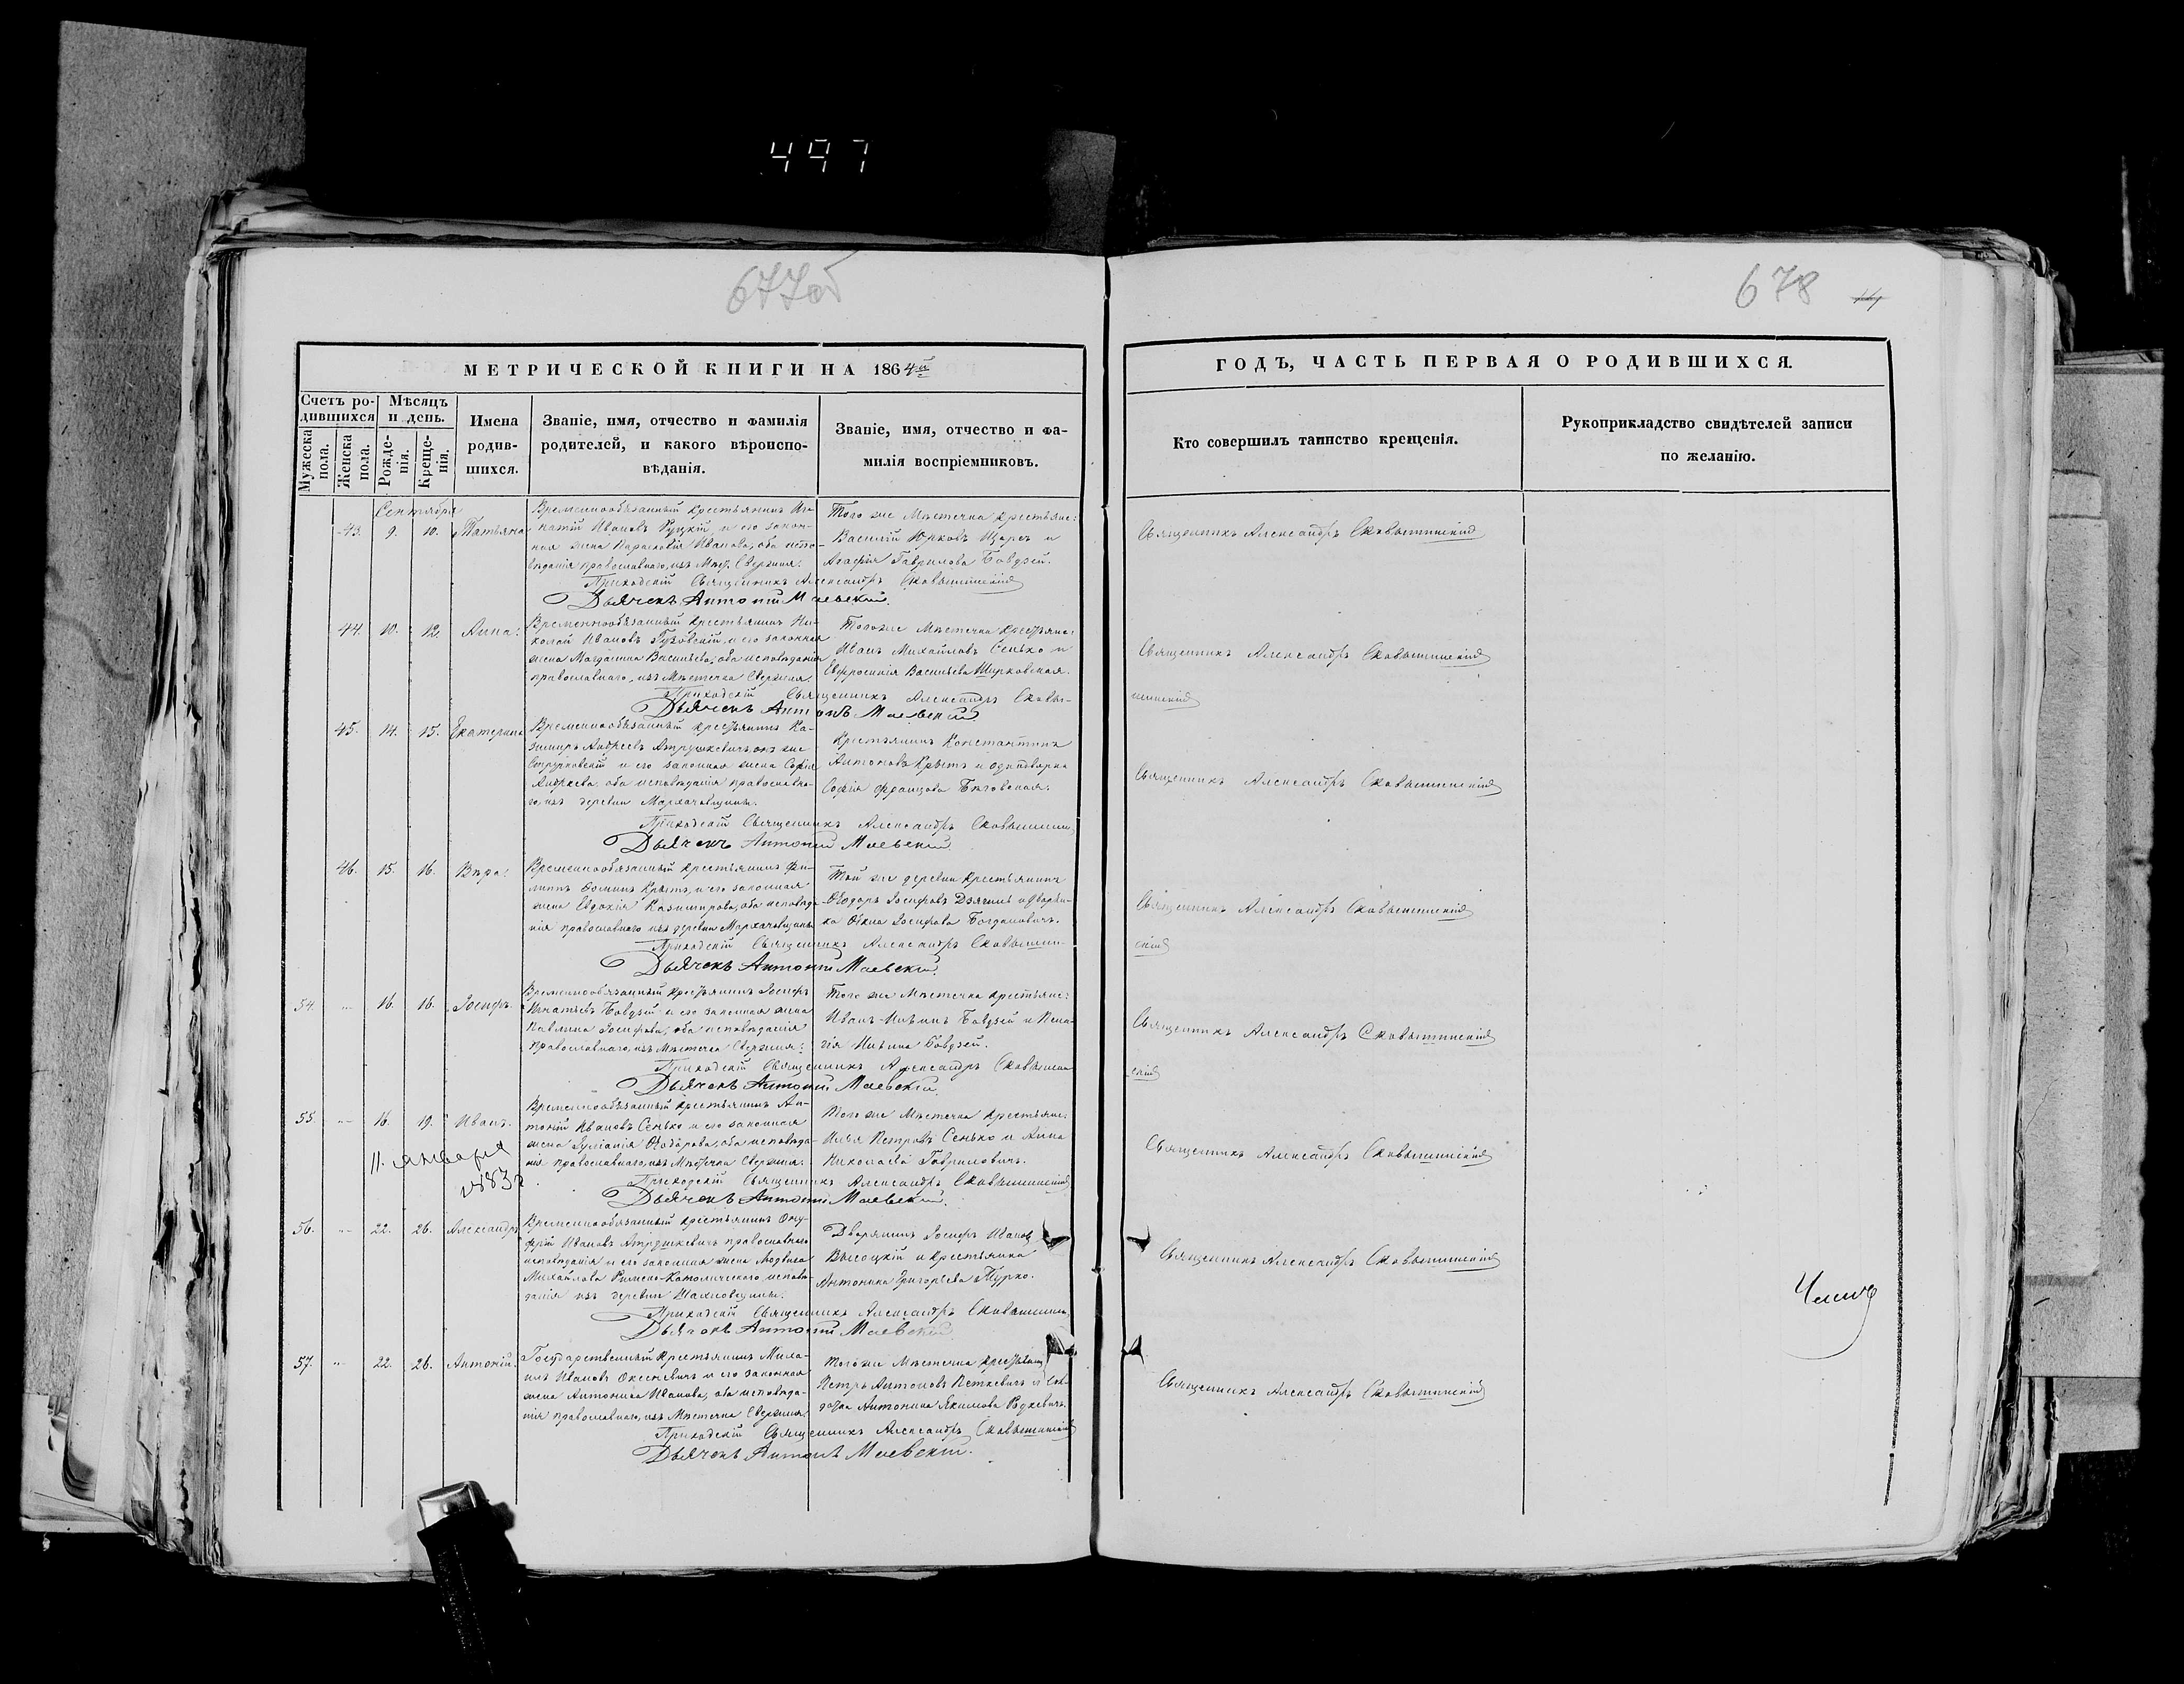 497
677об
678
МЕТРИЧЕСКОЙ КНИГИ НА 1864й
ГОДЪ, ЧАСТЬ ПЕРВАЯ О РОДИВШИХСЯ.
Счетъ ро-
дившихся
Мѣсяцъ
и день.
Мужеска
пола.
Женска
пола.
Рожде-
нія.
Креще-
нія.
Имена
родив-
шихся.
Званіе, имя, отчество и фамилія
родителей, и какого вѣроиспо-
вѣданія.
Званіе, имя, отчество и фа-
милія воспріемниковъ.
Кто совершилъ таинство крещенія.
Рукоприкладство свидѣтелей записи
по желанію.
Сентября
43. 9. 10. Татьяна
Временнообязанный крестьянинъ Иг-
натій Ивановъ Руцкій и его закон-
ная жена Параскевія Иванова, оба испо-
вѣданія православнаго, изъ Мѣст. Свержня.
Того же Мѣстечка крестьяне:
Василій Юрковъ Царъ и
Агафія Гаврилова Бовдзей.
Священникъ Александръ
Приходскій Священникъ Александръ
Дьячекъ Антоній Маевскій.
44. 10. 12. Анна.
Временнообязанный крестьянинъ Ни-
колай Ивановъ Гузовскій, и его законная
жена Магдалина Васильева, оба исповѣданія
православнаго, изъ Мѣстечка Свержня.
Того же Мѣстечка Крестьяне:
Иванъ Михайловъ Сенько и
Евфросинія Васильева
Священникъ Александръ
Приходскій Священникъ Александръ
Дьячекъ Антоній Маевскій
45. 14. 15. Екатерина
Временнообязанный крестьянинъ Ка-
зимиръ Андреевъ Атрушкевичъ, онъ же
и его законная жена Софія
Андреева, оба исповѣданія православна-
го, изъ деревни
Крестьянинъ Константинъ
Антоновъ Крытъ и однодворка
Софія Францова
Священникъ Александръ
Приходскій Священникъ Александръ
Дьячекъ Антоній Маевскій
46. 15. 16. Вѣра.
Временнообязанный крестьянинъ Фи-
липпъ Фоминъ Крытъ, и его законная
жена Евдокія Казимирова, оба исповѣда-
нія православнаго изъ деревни
Той же деревни Крестьянинъ
Ѳеодоръ Іосифовъ и дворян-
ка Іосифова Богдановичъ.
Священникъ Александръ
Приходскій Священникъ Александръ
Дьячекъ Антоній Маевскій.
54. 16. 16. Іосифъ.
Временнообязанный Крестьянинъ Іосифъ
Игнатьевъ Бовдзей и его законная жена
Павлина Іосифова, оба исповѣданія
Православнаго, изъ Мѣстечка Свержня.
Того же Мѣстечка крестьяне:
Иванъ Ильинъ Бовдзей и Пела-
гія Ильина Бовдзей.
Священникъ Александръ
Приходскій Священникъ Александръ
Дьячекъ Антоній Маевскій
55. 16. 19. Иванъ.
11. января
1883 г.
Временнообязанный крестьянинъ Ан-
тоній Ивановъ Сенько и его законная
жена Іуліанія Ѳеодорова, оба исповѣда-
нія православнаго, изъ Мѣстечка Свержня.
Того же Мѣстечка Крестьяне:
Илья Петровъ Сенько и Анна
Николаева Гавриловичъ.
Священникъ Александръ
Приходскій Священникъ Александръ
Дьячекъ Антоній Маевскій.
56. 22. 26. Александръ
Временнообязанный крестьянинъ Ону-
фрій Ивановъ Атрушкевичъ православнаго
исповѣданія и его законная жена Людвика
Михайлова Римско-Католическаго исповѣ-
данія изъ деревни
Дворянинъ Іосифъ Иванов
Высоцкій и крестьянка
Антонина Григорьева Турко.
Священникъ Александръ
Приходскій Священникъ Александръ
Дьячекъ Антоній Маевскій
57. 22. 26. Антоній.
Государственный Крестьянинъ Миха-
илъ Ивановъ и его законная
жена Антонина Иванова, оба исповѣда-
нія православнаго, изъ Мѣстечка Свержня.
Того же Мѣстечка
Петръ Антоновъ Петкевичъ и сол-
датка Антонина Якимова
Священникъ Александръ
Приходскій Священникъ Александръ
Дьячекъ Антоній Маевскій.